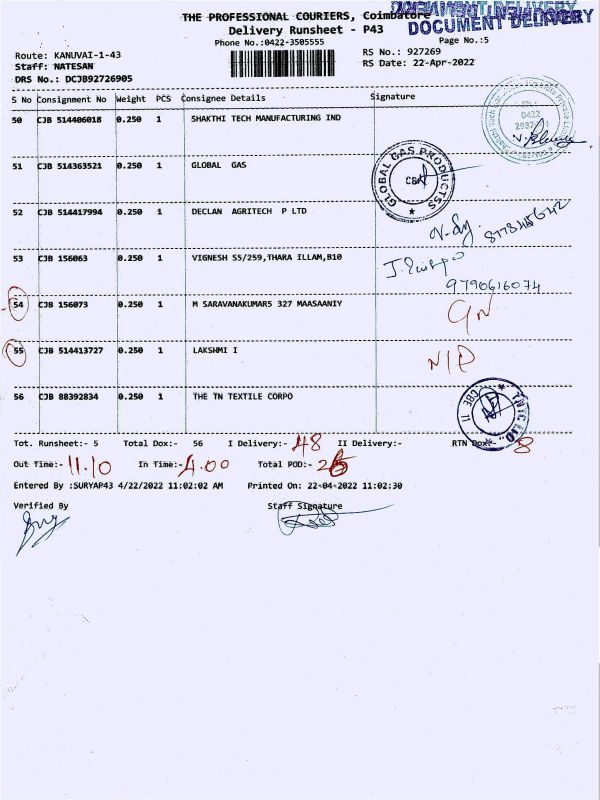 THE PROFESSIONAL COURIERS, Coimbatore
DOCUMENT DELIVERY
Delivery Runsheet - P43
Phone No.:0422-3505555
Page No.:5
Route: KANUVAI-1-43
RS No.: 927269
Staff: NATESAN
RS Date: 22-Apr-2022
DRS No.: DCJB92726905
S No Consignment No Weight PCS Consignee Details Signature
50 CJB 514406018 0.250 1 SHAKTHI TECH MANUFACTURING IND
0422
51 CJB 514363521 0.250 1 GLOBAL GAS
GLOBAL GAS PRODUCTSS
CBE
52 CJB 514417994 0.250 1 DECLAN AGRITECH P LTD
53 CJB 156063 0.250 1 VIGNESH S5/259,THARA ILLAM,B10
9790616074
54 CJB 156073 0.250 1 M SARAVANAKUMAR5 327 MAASAANIY
55 CJB 514413727 0.250 1 LAKSHMI I
N/P
56 CJB 88392834 0.250 1 THE TN TEXTILE CORPO
CBE 11
Tot. Runsheet:- 5 Total Dox:- 56 I Delivery:- 48 II Delivery:- RTN Dox:- 8
Out Time:- 11.10 In Time:- 4.00 Total POD:-
Entered By :SURYAP43 4/22/2022 11:02:02 AM Printed On: 22-04-2022 11:02:30
Verified By Staff Signature